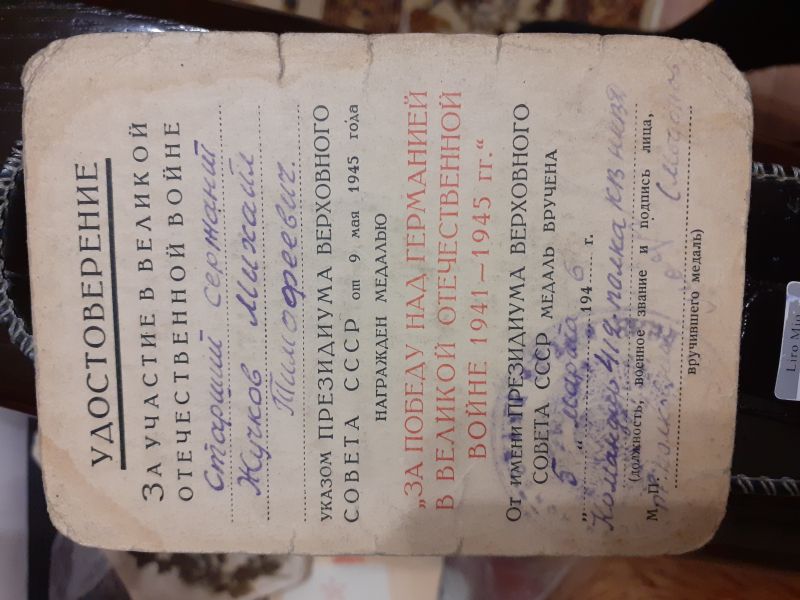 УДОСТОВЕРЕНИЕ
ЗА УЧАСТИЕ В ВЕЛИКОЙ
ОТЕЧЕСТВЕННОЙ ВОЙНЕ
Старший сержант
Жучков Михаил
Тимофеевич.
УКАЗОМ ПРЕЗИДИУМА ВЕРХОВНОГО
СОВЕТА СССР от 9 мая 1945 года
НАГРАЖДЕН МЕДАЛЬЮ
„ЗА ПОБЕДУ НАД ГЕРМАНИЕЙ
В ВЕЛИКОЙ ОТЕЧЕСТВЕННОЙ
ВОЙНЕ 1941—1945 гг.“
От имени ПРЕЗИДИУМА ВЕРХОВНОГО
СОВЕТА СССР МЕДАЛЬ ВРУЧЕНА
„5“ марта 1946 г.
Командир 41 полка
(должность, военное звание и подпись лица,
М. П.
вручившего медаль)
Liro Min